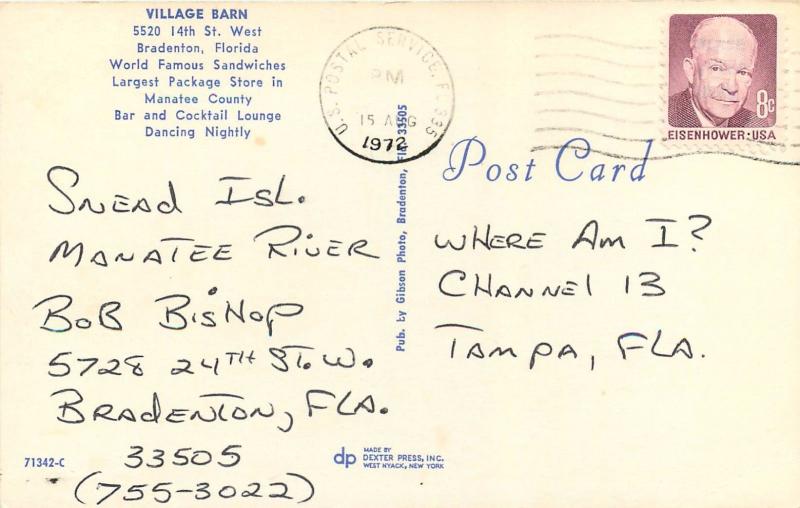 VILLAGE BARN
5520 14th St. West
Bradenton, Florida
World Famous Sandwiches
Largest Package Store in
Manatee County
Bar and Cocktail Lounge
Dancing Nightly
U.S. POSTAL SERVICE, FL 335
PM
15 AUG
1972
8c
EISENHOWER·USA
Post Card
SNEAD ISL.
MANATEE RIVER
BOB BISHOP
5728 24TH ST. W.
BRADENTON, FLA.
33505
(755-3022)
Pub. by Gibson Photo, Bradenton, Fla. 33505
WHERE AM I?
CHANNEL 13
TAMPA, FLA.
71342-C
dp
MADE BY
DEXTER PRESS, INC.
WEST NYACK, NEW YORK